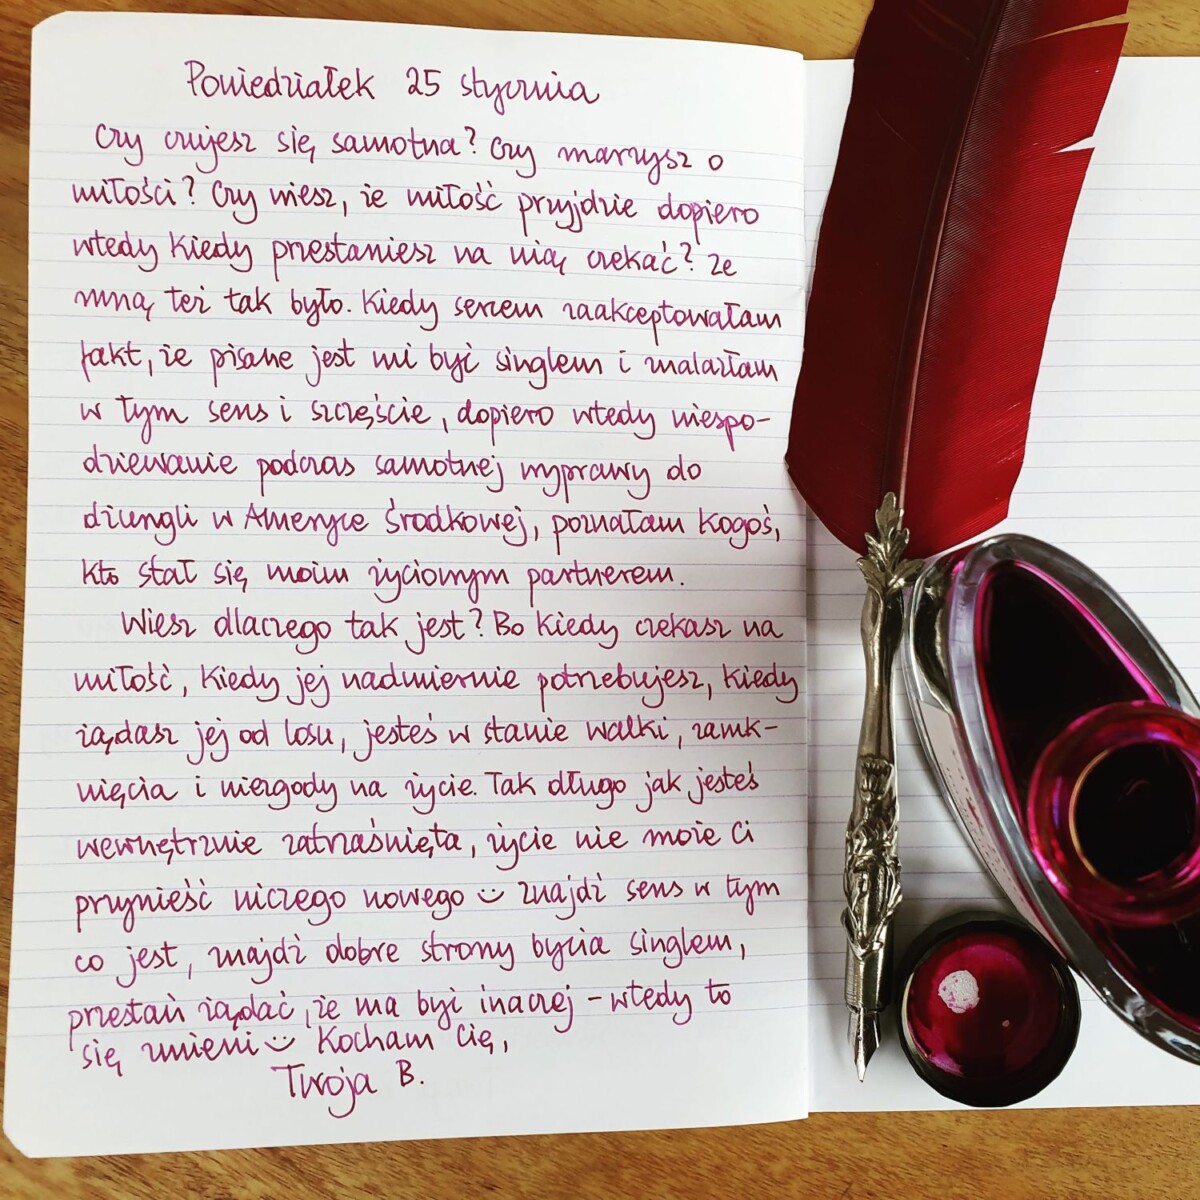 Poniedziałek 25 stycznia
Czy czujesz się samotna? Czy marzysz o
miłości? Czy wiesz, że miłość przyjdzie dopiero
wtedy kiedy przestaniesz na nią czekać? Ze
mną też tak było. Kiedy sercem zaakceptowałam
fakt, że pisane jest mi być singlem i znalazłam
w tym sens i szczęście, dopiero wtedy niespo-
dziewanie podczas samotnej wyprawy do
dżungli w Ameryce Środkowej, poznałam kogoś,
kto stał się moim życiowym partnerem.
Wiesz dlaczego tak jest? Bo kiedy czekasz na
miłość, kiedy jej nadmiernie potrzebujesz, kiedy
żądasz jej od losu, jesteś w stanie walki, zamk-
nięcia i niezgody na życie. Tak długo jak jesteś
wewnętrznie zatrzaśnięta, życie nie może Ci
przynieść niczego nowego :) Znajdź sens w tym
co jest, znajdź dobre strony bycia singlem,
przestań żądać, że ma być inaczej - wtedy to
się zmieni :) Kocham Cię,
Twoja B.